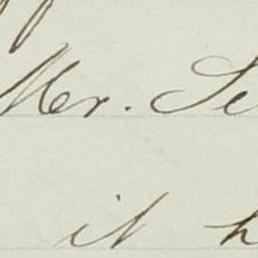 Mr. Se
it h